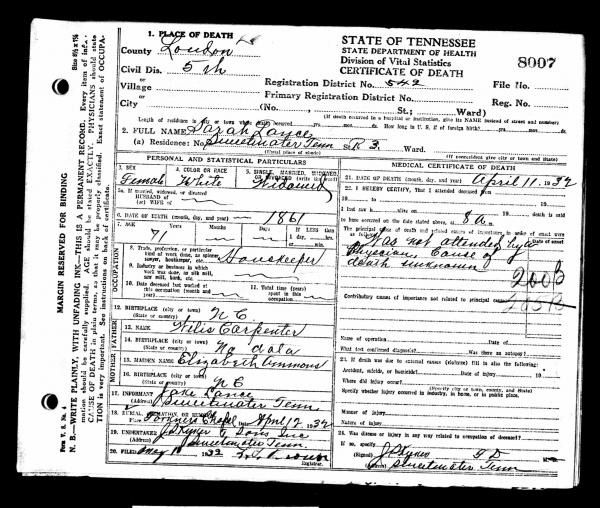 1. PLACE OF DEATH
County Loudon
Civil Dis. 5th
or
Village
or
City (No. , St.; Ward)
STATE OF TENNESSEE
STATE DEPARTMENT OF HEALTH
Division of Vital Statistics
CERTIFICATE OF DEATH
8007
Registration District No. 542
File No.
Primary Registration District No.
Reg. No.
(If death occurred in a hospital or institution, give its NAME instead of street and number)
Length of residence in city or town where death occurred yrs. mos. ds. How long in U. S. if of foreign birth? yrs. mos. ds.
2. FULL NAME Sarah Lance
(a) Residence: No. Sweetwater Tenn R 3. Ward.
(Usual place of abode) (If nonresident give city or town and state)
PERSONAL AND STATISTICAL PARTICULARS
3. SEX Female
4. COLOR OR RACE White
5. SINGLE, MARRIED, WIDOWED, OR DIVORCED (write the word) Widowed
5a. If married, widowed, or divorced
HUSBAND of
(or) WIFE of
6. DATE OF BIRTH (month, day, and year) 1861
7. AGE 71 Years Months Days If LESS than
OCCUPATION
8. Trade, profession, or particular
kind of work done, as spinner,
sawyer, bookkeeper, etc. Housekeeper
9. Industry or business in which
work was done, as silk mill,
saw mill, bank, etc.
10. Date deceased last worked at
this occupation (month and
year)
11. Total time (years)
spent in this
occupation
12. BIRTHPLACE (city or town) N C
(State or country)
FATHER
13. NAME Wilis Carpenter
14. BIRTHPLACE (city or town) No data
(State or country)
MOTHER
15. MAIDEN NAME Elizabeth Ammons
16. BIRTHPLACE (city or town) N C
(State or country)
17. INFORMANT Jake Lance
(Address) Sweetwater Tenn
18. BURIAL, CREMATION, OR REMOVAL
Place Chapel Date April 12 1932
19. UNDERTAKER J D Kyker & Sons Inc
(Address) Sweetwater Tenn.
20. FILED May 1932
Registrar.
MEDICAL CERTIFICATE OF DEATH
21. DATE OF DEATH (month, day, and year) April 11, 1932
22. I HEREBY CERTIFY, That I attended deceased from
, 19 , to , 19
I last saw h alive on , 19 death is said
to have occurred on the date stated above, at 8 m.
The principal cause of death and related causes of importance in order of onset were
as follows: Date of onset
Was not attended by a
Physician. Cause of
death unknown
200B
Contributory causes of importance not related to principal cause:
Name of operation Date of
What test confirmed diagnosis? Was there an autopsy?
23. If death was due to external causes (violence) fill in also the following:
Accident, suicide, or homicide? Date of injury 19
Where did injury occur?
(Specify city or town, county, and State)
Specify whether injury occurred in industry, in home, or in public place.
Manner of injury
Nature of injury
24. Was disease or injury in any way related to occupation of deceased?
If so, specify
(Signed) J D Kyker
(Address) Sweetwater Tenn
MARGIN RESERVED FOR BINDING
N. B.—WRITE PLAINLY, WITH UNFADING INK—THIS IS A PERMANENT RECORD. Every item of information should be carefully supplied. AGE should be stated EXACTLY. PHYSICIANS should state CAUSE OF DEATH in plain terms, so that it may be properly classified. Exact statement of OCCUPATION is very important. See instructions on back of certificate.